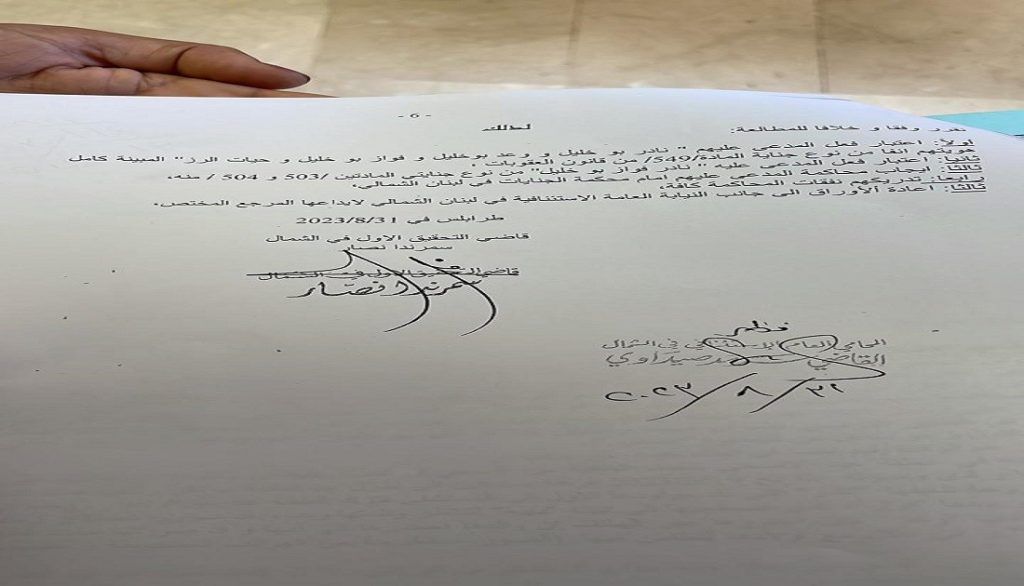 - 6 -
لذلك
نقرر وفقا و خلافا للمطالعة:
اولاً: اعتبار فعل المدعى عليهم " نادر بو خليل و وعد بوخليل و فواز بو خليل و حيات الرز" المبينة كامل
هويتهم آنفا من نوع جناية المادة/549/ من قانون العقوبات .
ثانيا: اعتبار فعل المدعى عليه " نادر فواز بو خليل" من نوع جنايتي المادتين /503 و 504 / منه.
ثالثا: ايجاب محاكمة المدعى عليهم امام محكمة الجنايات في لبنان الشمالي.
رابعا: تدريكهم نفقات المحاكمة كافة.
ثالثا: اعادة الأوراق الى جانب النيابة العامة الاستئنافية في لبنان الشمالي لايداعها المرجع المختص.
طرابلس في 2023/8/31
قاضي التحقيق الاول في الشمال
سمرندا نصار
قاضي التحقيق الاول في الشمال
سمرندا نصّار
المحامي العام الاستئنافي في الشمال
القاضي صيداوي